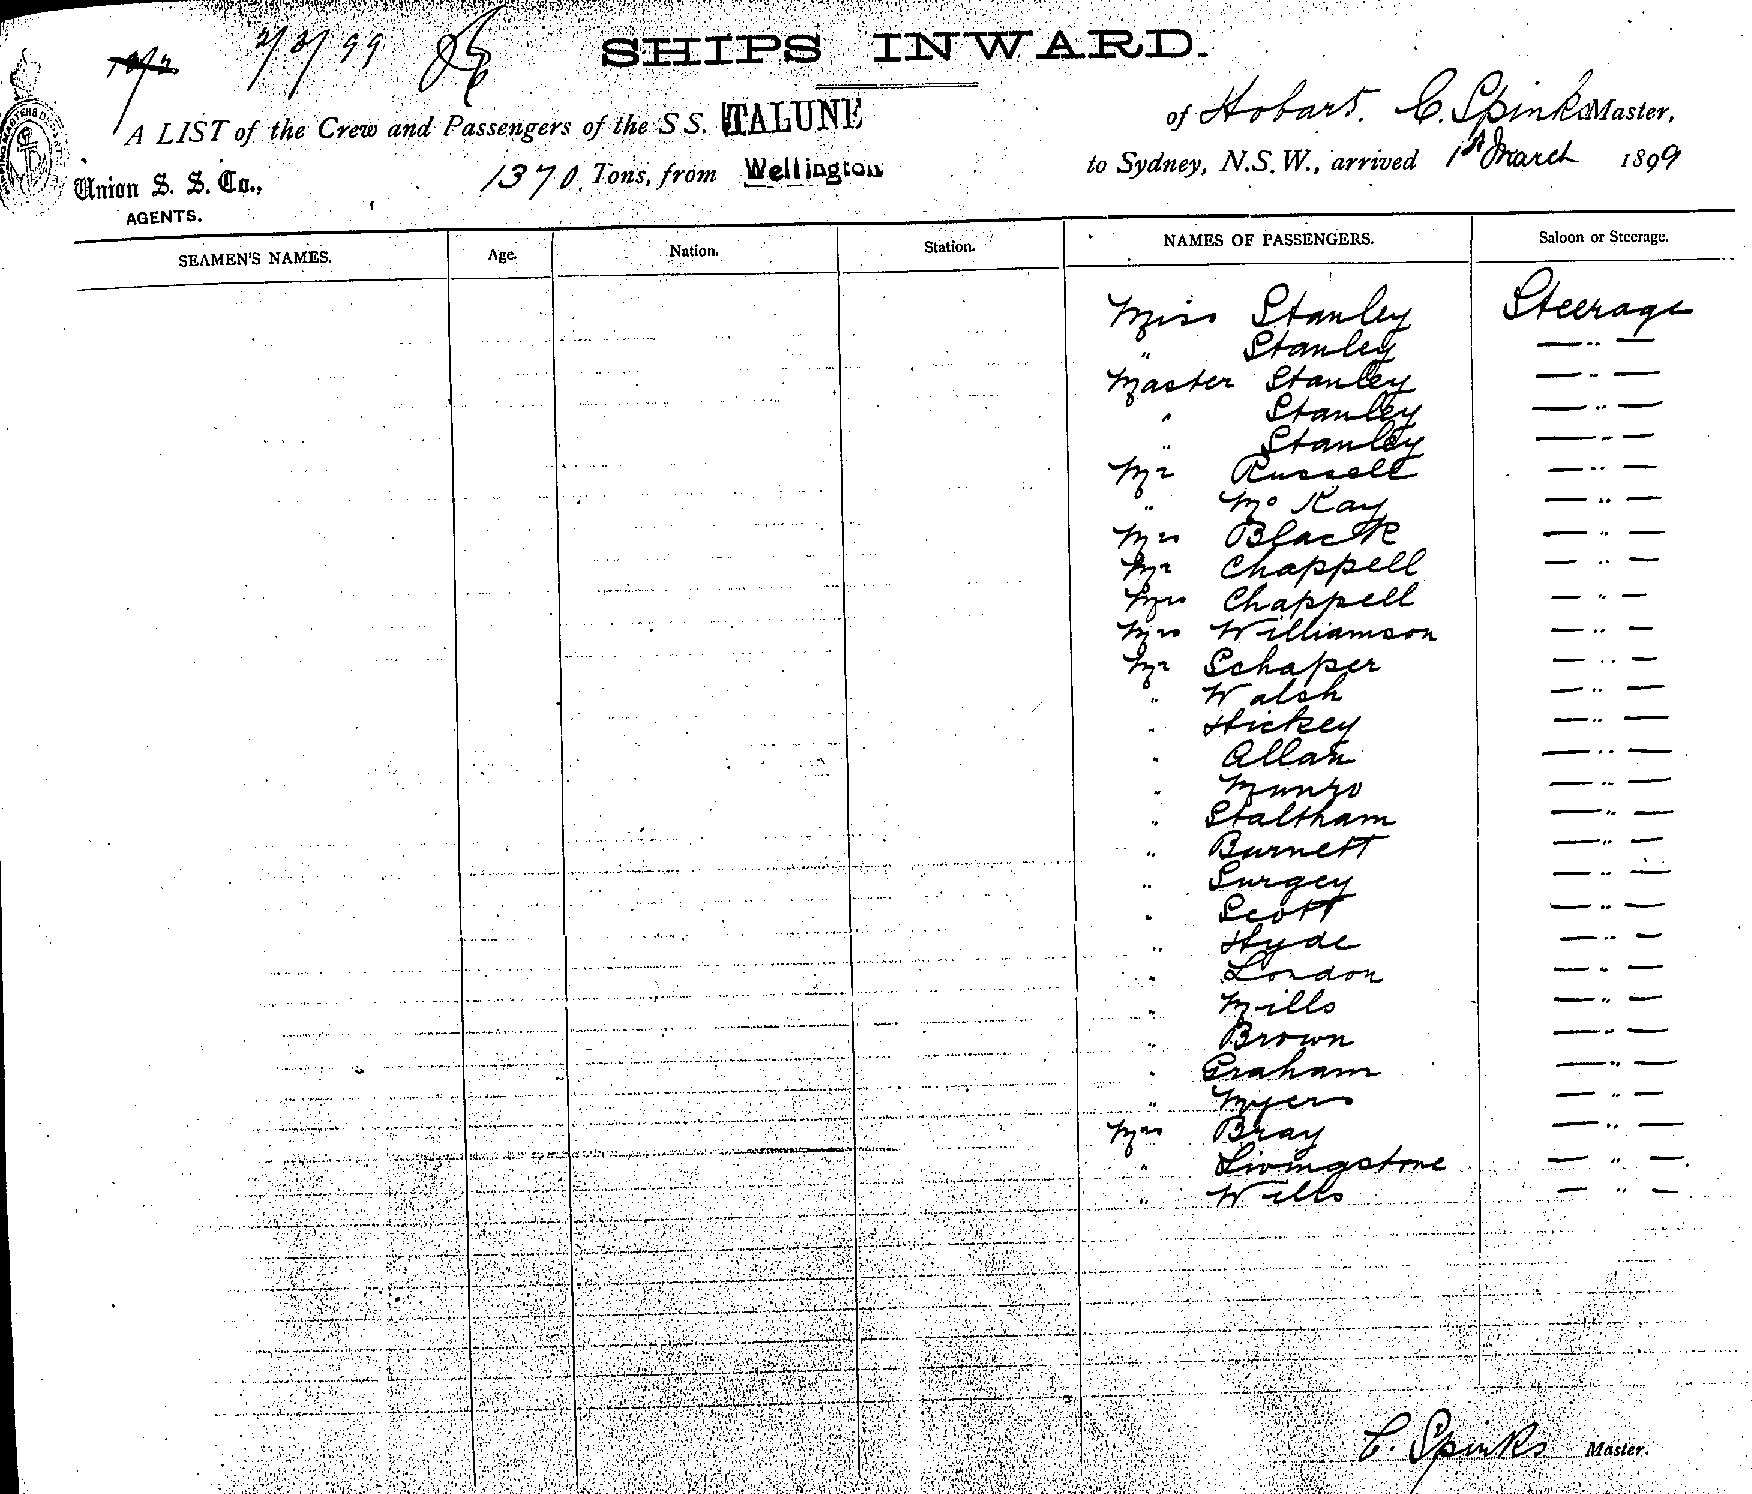 2/3/99
SHIPS INWARD.
A LIST of the Crew and Passengers of the SS. TALUNE of Hobart. C. Spinks Master,
Union S. S. Co., 1370 Tons, from Wellington to Sydney, N.S.W., arrived 1st March 1899
AGENTS.
SEAMEN'S NAMES. Age. Nation. Station. NAMES OF PASSENGERS. Saloon or Steerage.
Miss Stanley Steerage
" Stanley — " —
Master Stanley — " —
" Stanley — " —
" Stanley — " —
Mr Russell — " —
" Mc Kay — " —
Mrs Black — " —
Mr Chappell — " —
Mrs Chappell — " —
Mrs Williamson — " —
Mr Schaper — " —
" Walsh — " —
" Hickey — " —
" Allan — " —
" Munro — " —
" Staltham — " —
" Burnett — " —
" Surgey — " —
" Scott — " —
" Hyde — " —
" London — " —
" Mills — " —
" Brown — " —
" Graham — " —
" Myers — " —
Mrs Bray — " —
" Livingstone — " —
" Wills — " —
C. Spinks Master.